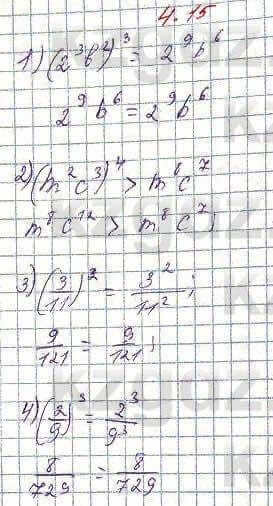 4.15
1) (2³b²)³ = 2⁹b⁶
2⁹b⁶ = 2⁹b⁶
2) (m²c³)⁴ > m⁸c⁷
m⁸c¹² > m⁸c⁷;
3) (3/11)² = 3²/11²;
9/121 = 9/121;
4) (2/9)³ = 2³/9³
8/729 = 8/729